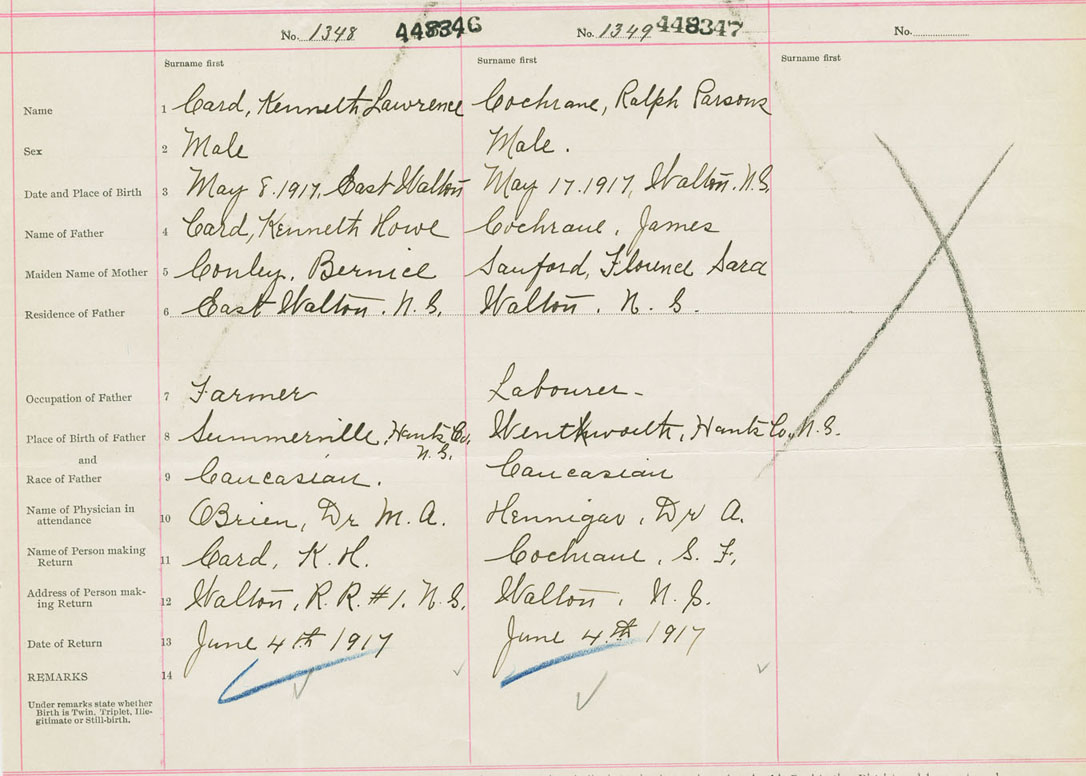 No. 1348 448346 No. 1349 448347 No.
Surname first Surname first Surname first
Name 1 Card, Kenneth Lawrence Cochrane, Ralph Parsons
Sex 2 Male Male.
Date and Place of Birth 3 May 8. 1917, East Walton May 17. 1917, Walton. N.S.
Name of Father 4 Card, Kenneth Howe Cochrane, James
Maiden Name of Mother 5 Conley, Bernice Sanford, Florence Sara
Residence of Father 6 East Walton. N.S. Walton. N.S.
Occupation of Father 7 Farmer Labourer-
Place of Birth of Father 8 Summerville, Hants Co, Wentkworth, Hants Co., N.S.
N.S.
and
Race of Father 9 Caucasian. Caucasian
Name of Physician in
attendance 10 OBrien, Dr M. A. Hennigar, Dr A.
Name of Person making
Return 11 Card, K. H. Cochrane, S. F.
Address of Person mak-
ing Return 12 Walton, R.R. #1. N.S. Walton, N.S.
Date of Return 13 June 4th 1917 June 4th 1917
REMARKS 14
Under remarks state whether
Birth is Twin, Triplet, Ille-
gitimate or Still-birth.